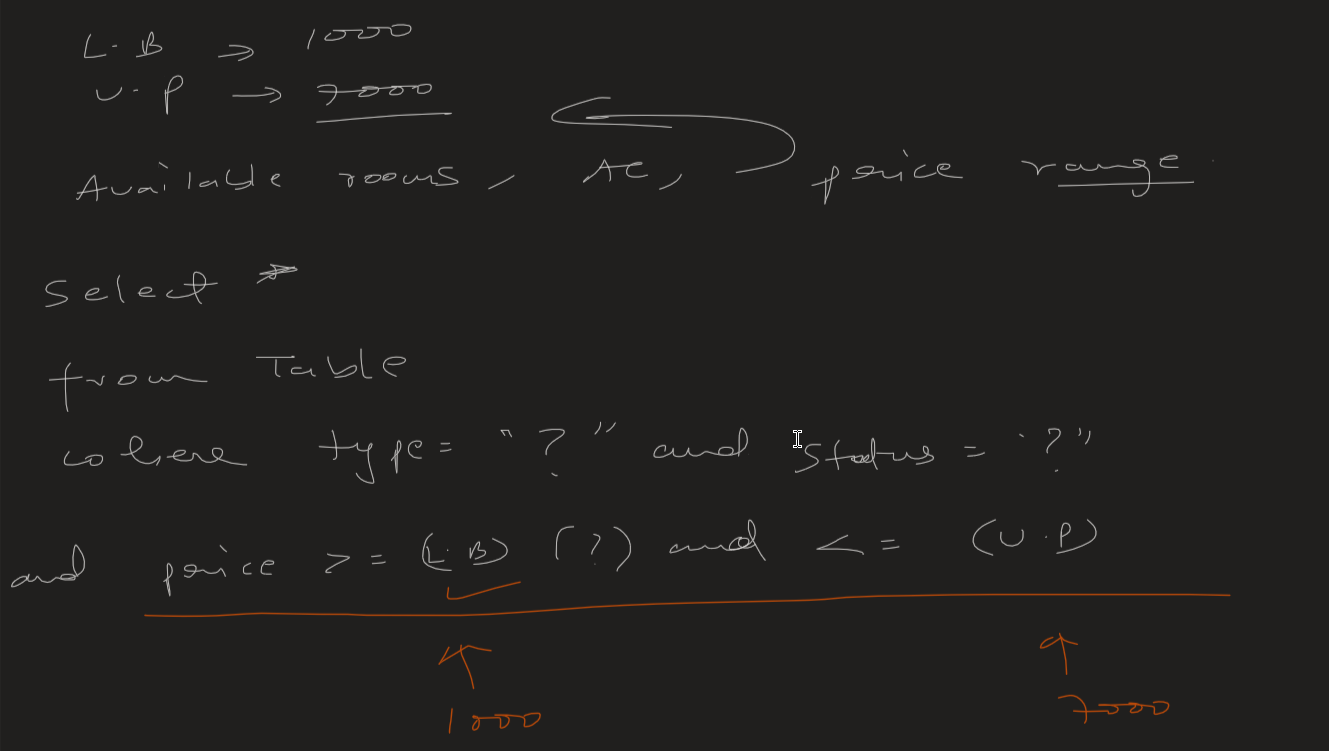 L.B → 1000
U.P → 7000
Available rooms, AC, price range
Select *
from Table
where type = "?" and status = "?"
and price >= (L.B) (?) and <= (U.P)
1000 7000